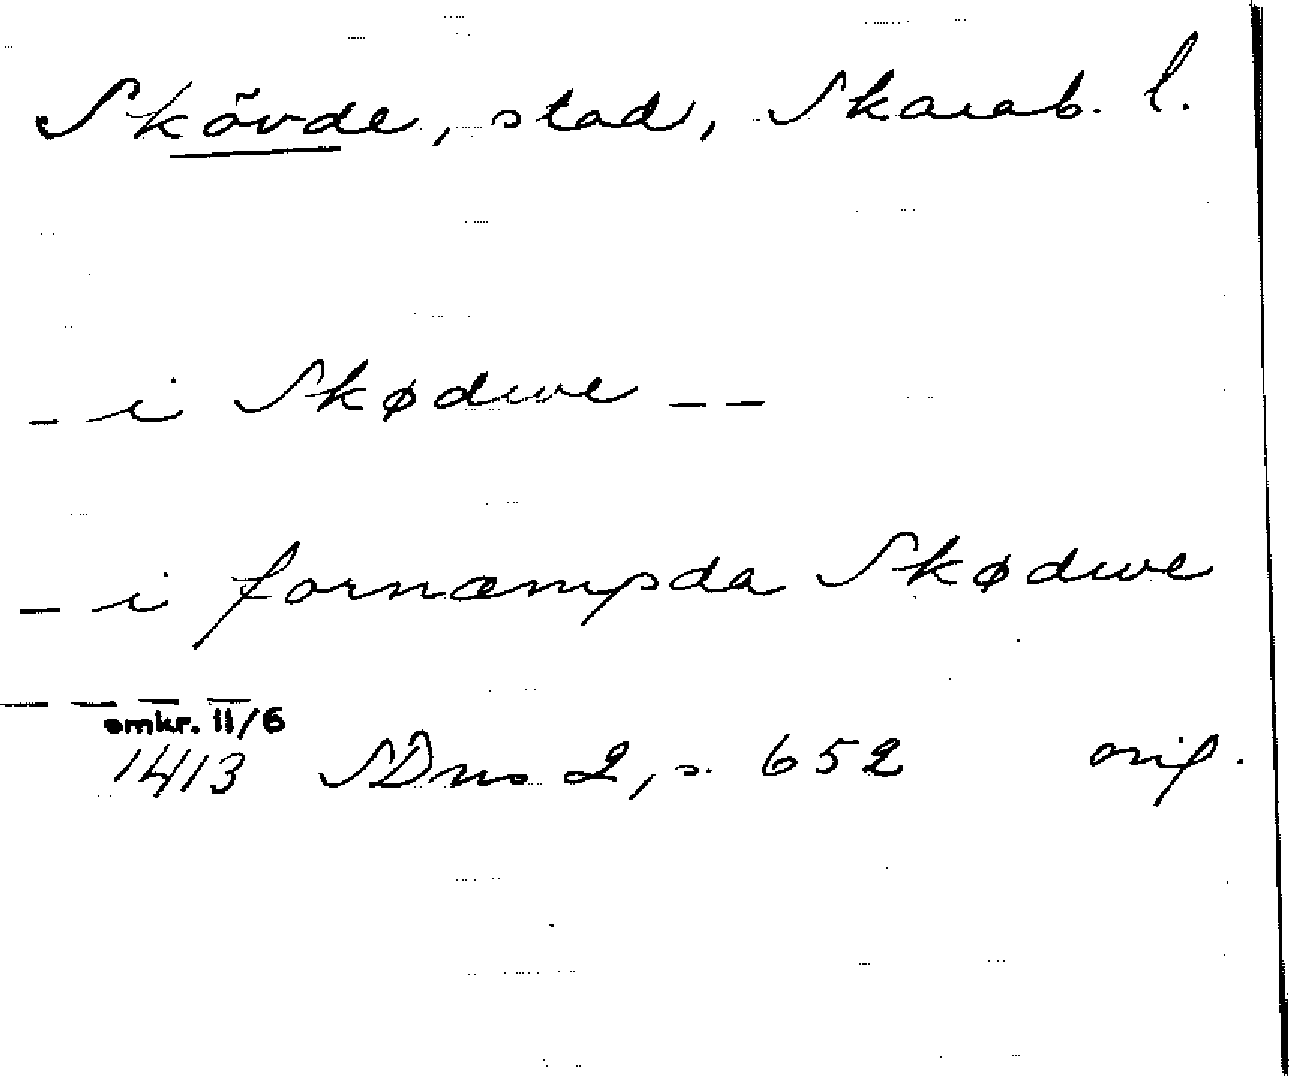 Skövde, stad, Skarab. l.
- i Skødwe - -
- i fornæmpda Skødwe
- - - -
omkr. 11/6
1413 SDns 2, s. 652 orig.